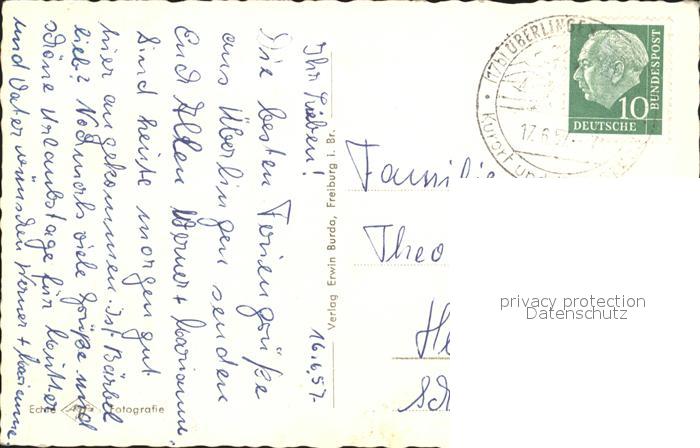 Ihr Lieben!
16.6.57.
Die besten Feriengrüße
aus Überlingen senden
Euch Allen Werner + Marianne.
Sind heute morgen gut
hier angekommen. Ist Bärbel
lieb? Nochmals viele Grüße und
schöne Urlaubstage für Mutter
und Vater wünschen Werner + Marianne
Verlag Erwin Burda, Freiburg i. Br.
Echte Fotografie
(17b) ÜBERLINGEN
17.6.57
Kurort
10
DEUTSCHE
BUNDESPOST
Familie
Theo
privacy protection
Datenschutz